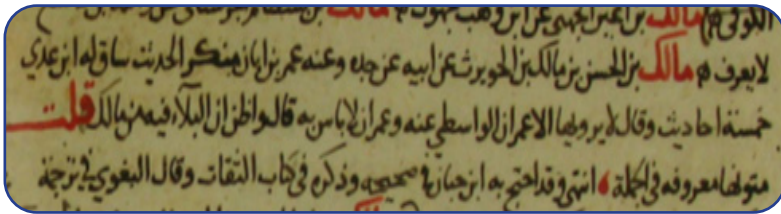 الكوفي هم مالك بن اغر الجهني عن ابن وهب مجهول هم مالك بن
لا يعرف هم مالك بن الحسن بن مالك بن الحويرث عن ابيه عن جده وعنه عمر بن ابان منكر الحديث ساق له ابن عدي
خمسة احاديث وقال لا يرويها الا عمران الواسطي عنه وعمران لا باس به قال واظن ان البلاء فيه من مالك قلت
متونها معروفه في الجملة انتهى وقد احتج به ابن حبان في صحيحه وذكره في كتاب الثقات وقال البغوي في ترجمة